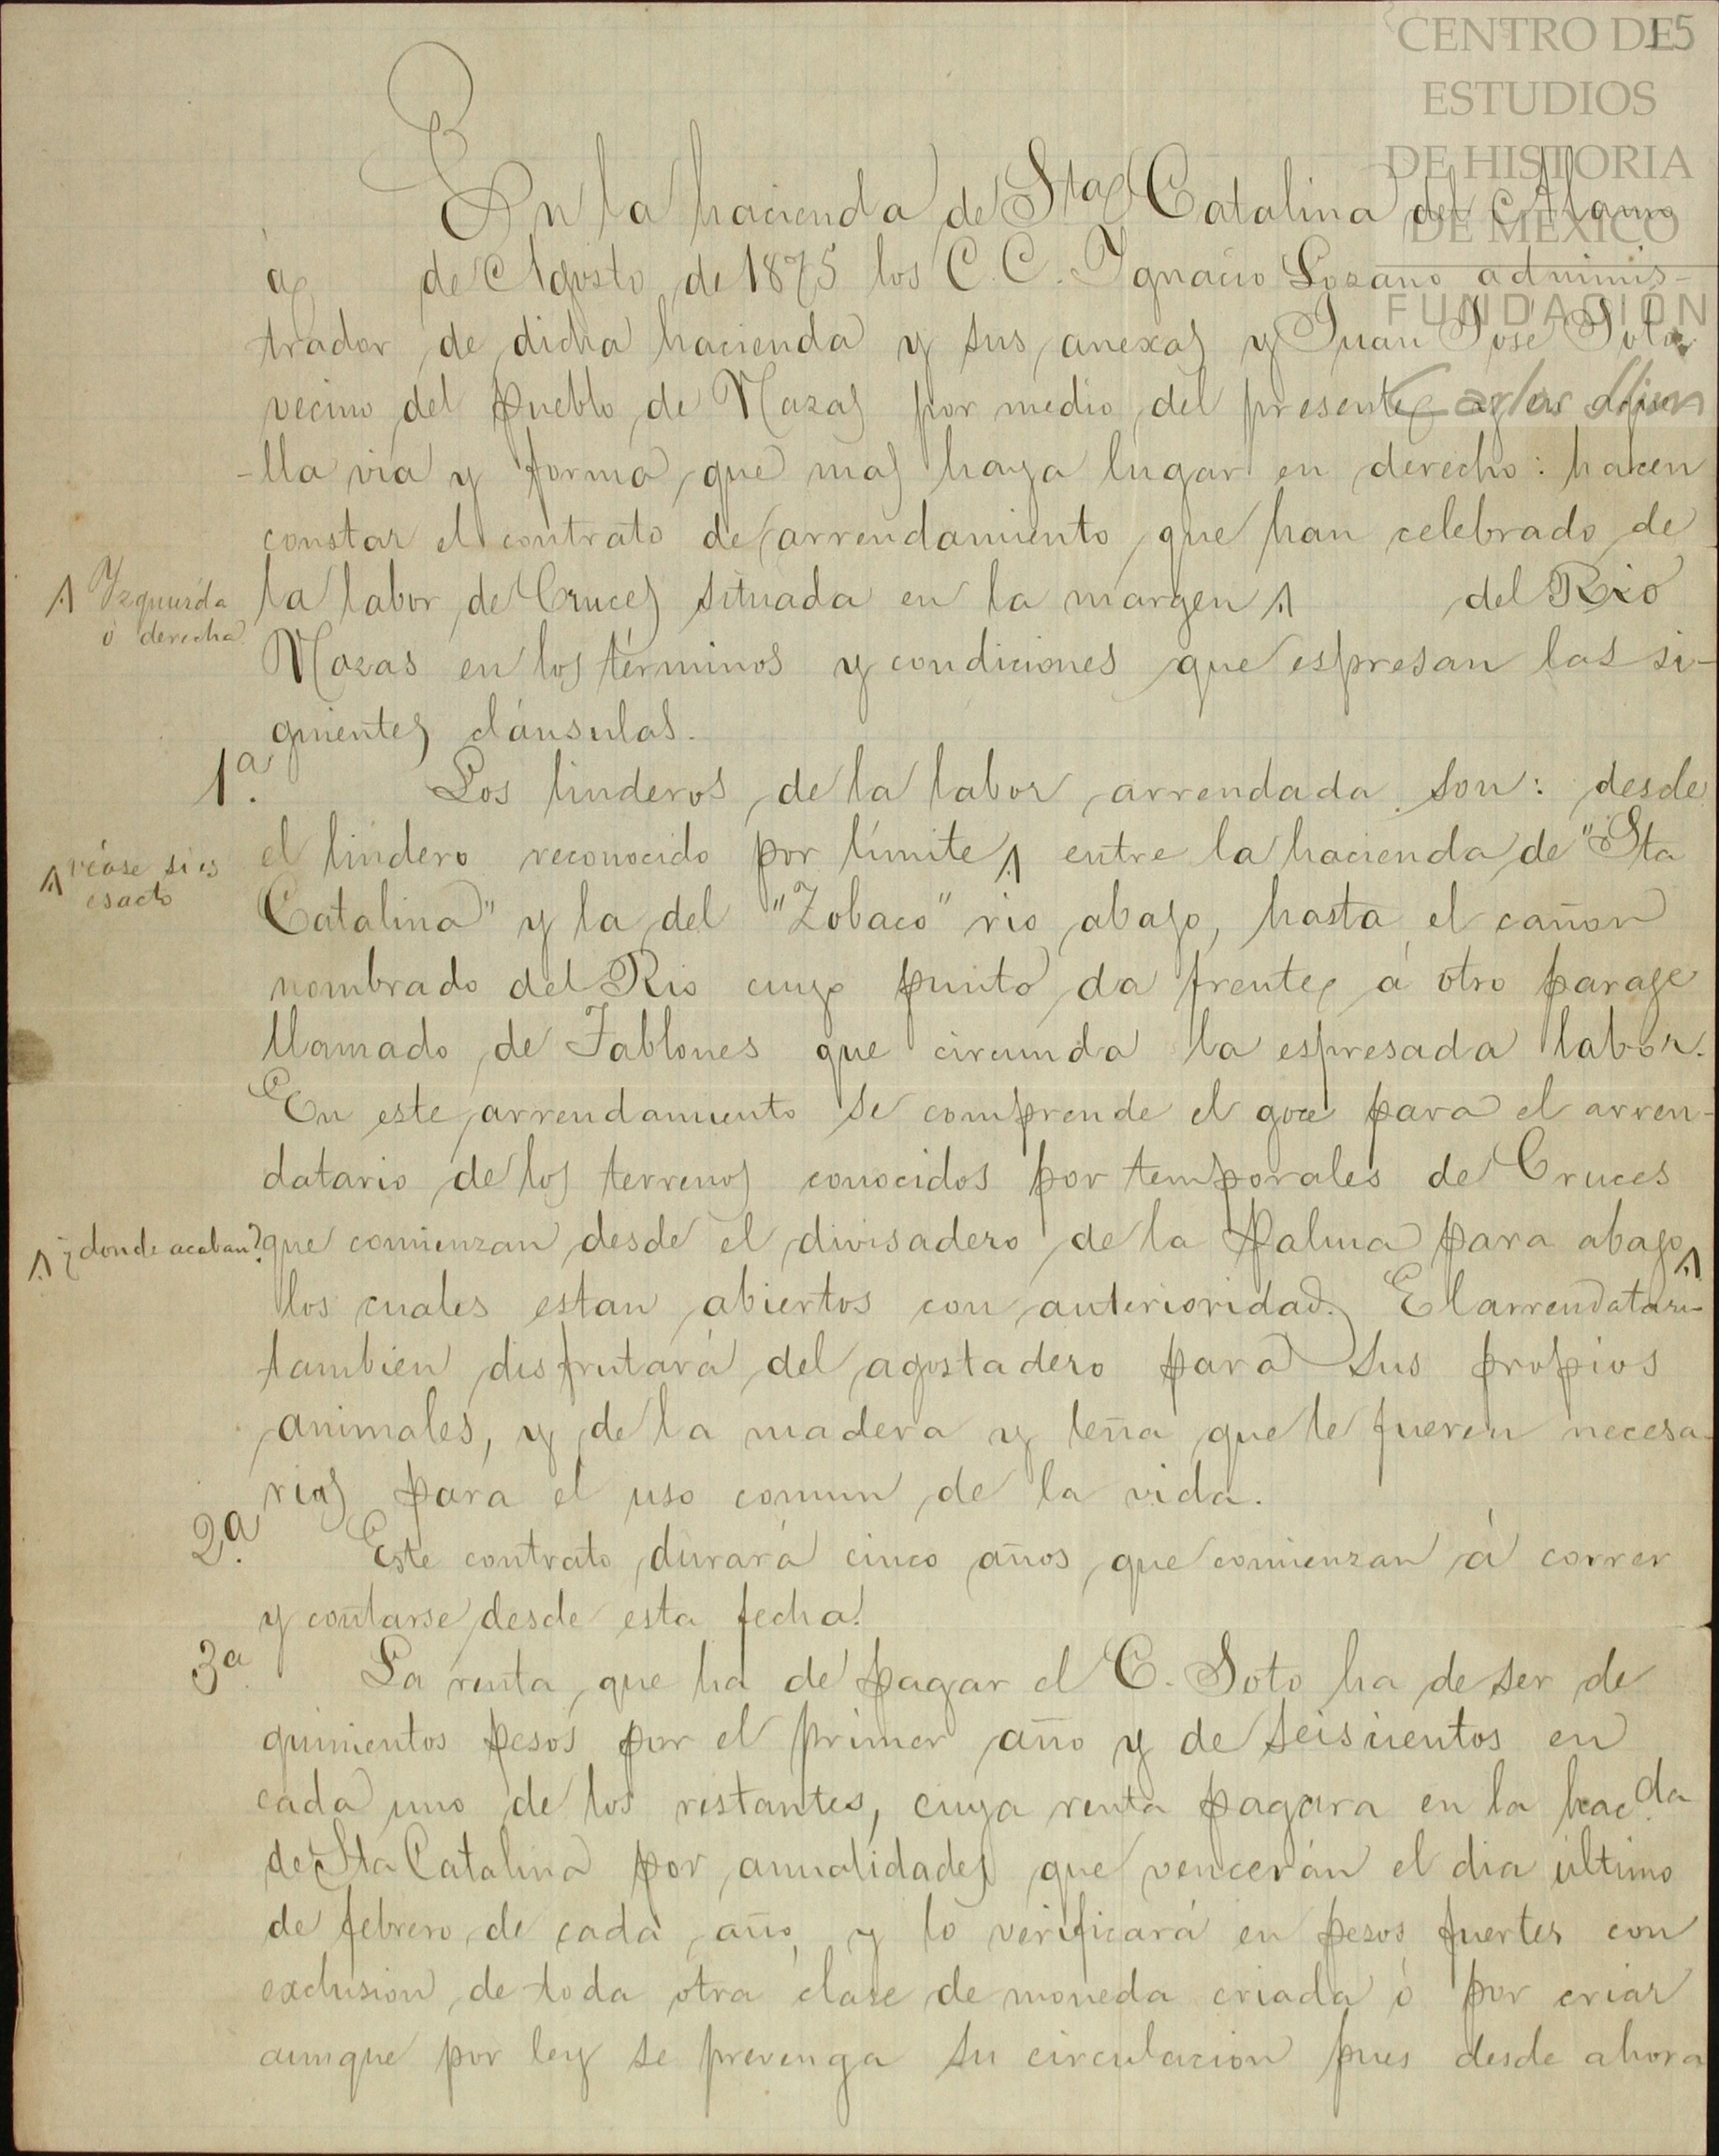 CENTRO DE
15
ESTUDIOS
DE HISTORIA
DE MEXICO
FUNDACION
Carlos Slim
En la hacienda de Sta Catalina del Alamo
a de Agosto de 1875 los C.C. Ygnacio Lozano adminis-
trador de dicha hacienda y sus anexas y Juan José Soto
vecino del pueblo de Nazas por medio del presente
-lla via y forma que mas haya lugar en derecho: hacen
constar el contrato de arrendamiento que han celebrado de
Λ Yzquierda
ó derecha
la labor de Cruces situada en la margen Λ del Rio
Nazas en los términos y condiciones que espresan las si-
guientes cláusulas.
1ª. Los linderos de la labor arrendada son: desde
Λ véase si es
esacto
el lindero reconocido por límite Λ entre la hacienda de "Sta
Catalina" y la del "Zobaco" rio abajo, hasta el cañon
nombrado del Rio cuyo punto da frente á otro parage
llamado de Tablones que circunda la espresada labor.
En este arrendamiento se comprende el goce para el arren-
datario de los terrenos conocidos por temporales de Cruces
Λ ¿donde acaban?
que comienzan desde el divisadero de la Palma para abajo Λ
los cuales estan abiertos con anterioridad. El arrendatario
tambien disfrutará del agostadero para sus propios
animales, y de la madera y leña que le fueren necesa-
rias para el uso comun de la vida.
2ª. Este contrato durará cinco años que comienzan á correr
y contarse desde esta fecha.
3ª La renta que ha de pagar el C. Soto ha de ser de
quinientos pesos por el primer año y de seiscientos en
cada uno de los restantes, cuya renta pagara en la hacda
de Sta Catalina por anualidades que vencerán el dia último
de febrero de cada año, y lo verificará en pesos fuertes con
exclusion de toda otra clase de moneda criada ó por criar
aunque por ley se prevenga su circulacion pues desde ahora